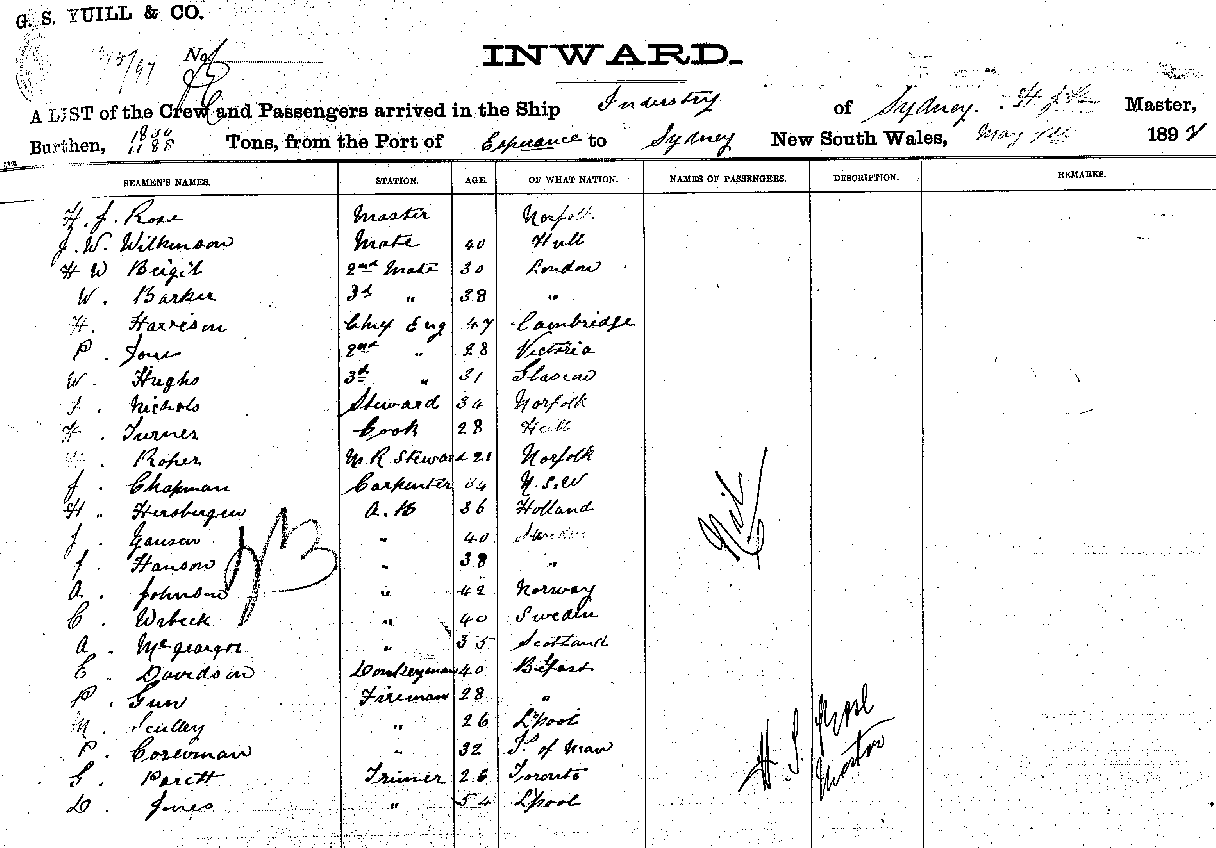 G. S. YUILL & CO.
No.
INWARD.
A LIST of the Crew and Passengers arrived in the Ship Industry of Sydney. Master,
Burthen, Tons, from the Port of Esperance to Sydney New South Wales, May 1st 1897
SEAMEN'S NAMES. STATION. AGE. OF WHAT NATION. NAMES OF PASSENGERS. DESCRIPTION. REMARKS.
H. J. Rose Master Norfolk
J. W. Wilkinson Mate 40 Hull
H W 2nd Mate 30 London
W. Barker 3d " 38 "
H. Harrison Chief Eng 47 Cambridge
P. Jones 2nd " 28 Victoria
W. Hughs 3rd " 31 Glascow
J. Nichols Steward 34 Norfolk
Turner Cook 28 Hull
Roper M. R Steward 21 Norfolk
J. Chapman Carpenter 34 N.S.W
H. Hersbergen A.B 36 Holland
J. Janson " 40 Sweden
J. Hanson " 38 "
A. Johnson " 42 Norway
C. " 40 Sweden
A. McGeorge " 35 Scotland
E. Davidson Donkeyman 40 Belfast
P. Gun Fireman 28 "
M. Sculley " 26 L'pool
P. " 32 I. of Man
G. Trimer 26 Toronto
D. Jones " 54 L'pool
Nil
H. J. Rose
Master